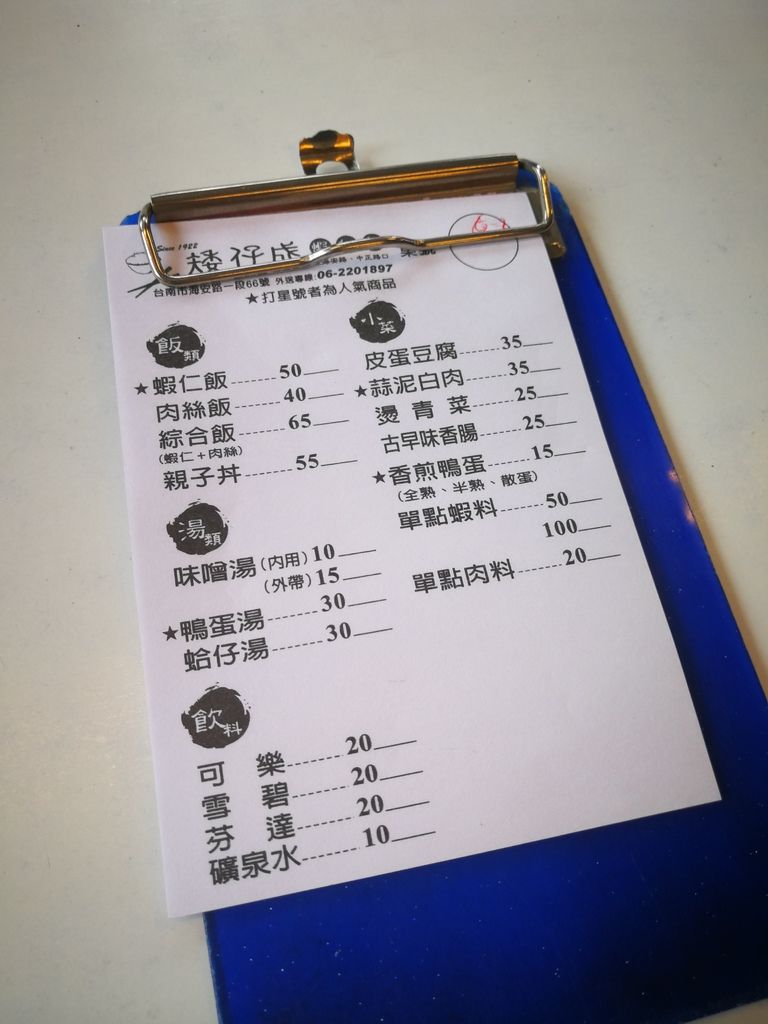 Since 1922
矮仔成
台南市海安路一段66號 外送專線:06-2201897
★打星號者為人氣商品
飯類
★蝦仁飯 50
肉絲飯 40
綜合飯 65
(蝦仁+肉絲)
親子丼 55
湯類
味噌湯(內用) 10
(外帶) 15
★鴨蛋湯 30
蛤仔湯 30
飲料
可樂 20
雪碧 20
芬達 20
礦泉水 10
小菜
皮蛋豆腐 35
★蒜泥白肉 35
燙青菜 25
古早味香腸 25
★香煎鴨蛋 15
(全熟、半熟、散蛋)
單點蝦料 50
100
單點肉料 20